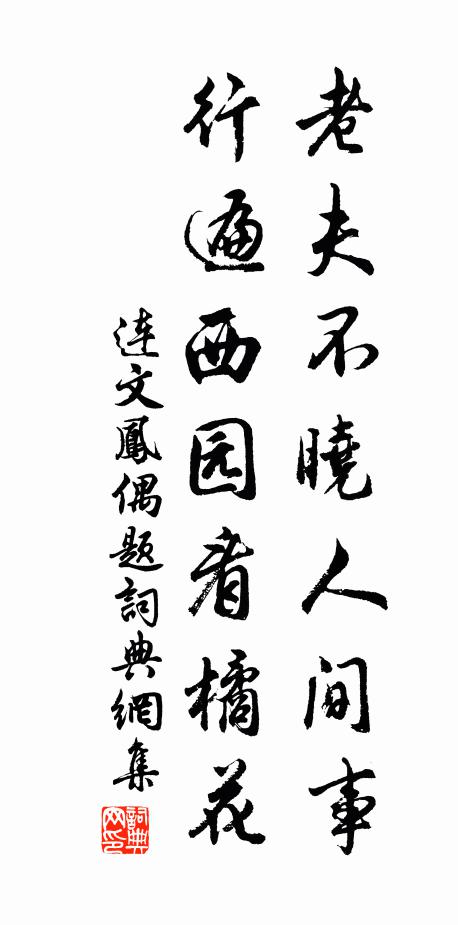 老夫不曉人间事
行遍西园看橘花
连文鳳偶题詞典網集
詞典网印